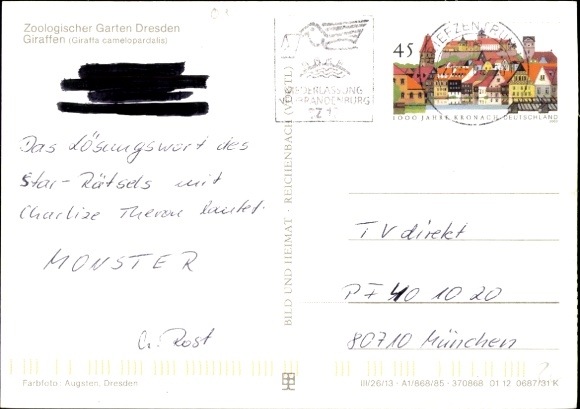 Zoologischer Garten Dresden
Giraffen (Giraffa camelopardalis)
Das Lösungswort des
Star-Rätsels mit
Charlize Theron lautet:
MONSTER
G. Rost
Farbfoto: Augsten, Dresden
BILD UND HEIMAT · REICHENBACH (VOGTL)
BRIEFZENTRUM
NIEDERLASSUNG
BRANDENBURG
45
1000 JAHRE KRONACH DEUTSCHLAND
TV direkt
PF 40 10 20
80710 München
III/26/13 · A1/868/85 · 370868 01 12 0687/31 K